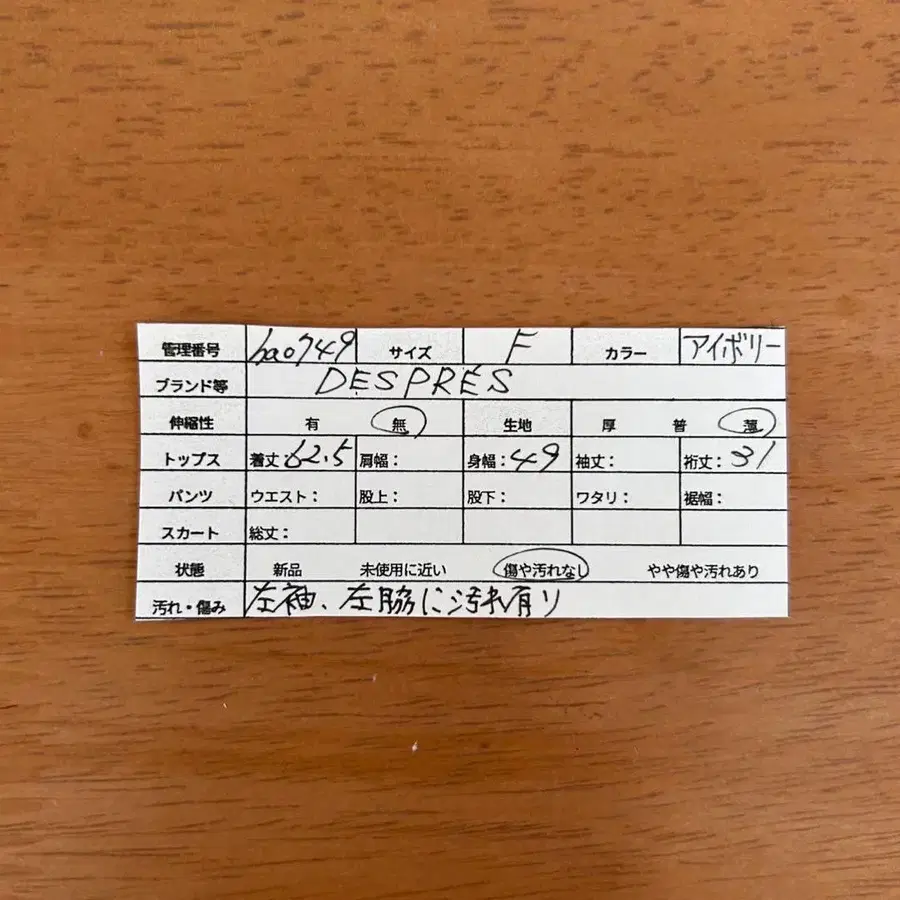 管理番号 ha0749 サイズ F カラー アイボリー
ブランド等 DESPRÉS
伸縮性 有 無 生地 厚 普 薄
トップス 着丈:62.5 肩幅: 身幅:49 袖丈: 裄丈:31
パンツ ウエスト: 股上: 股下: ワタリ: 裾幅:
スカート 総丈:
状態 新品 未使用に近い 傷や汚れなし やや傷や汚れあり
汚れ・傷み 左袖、左脇に汚れ有り